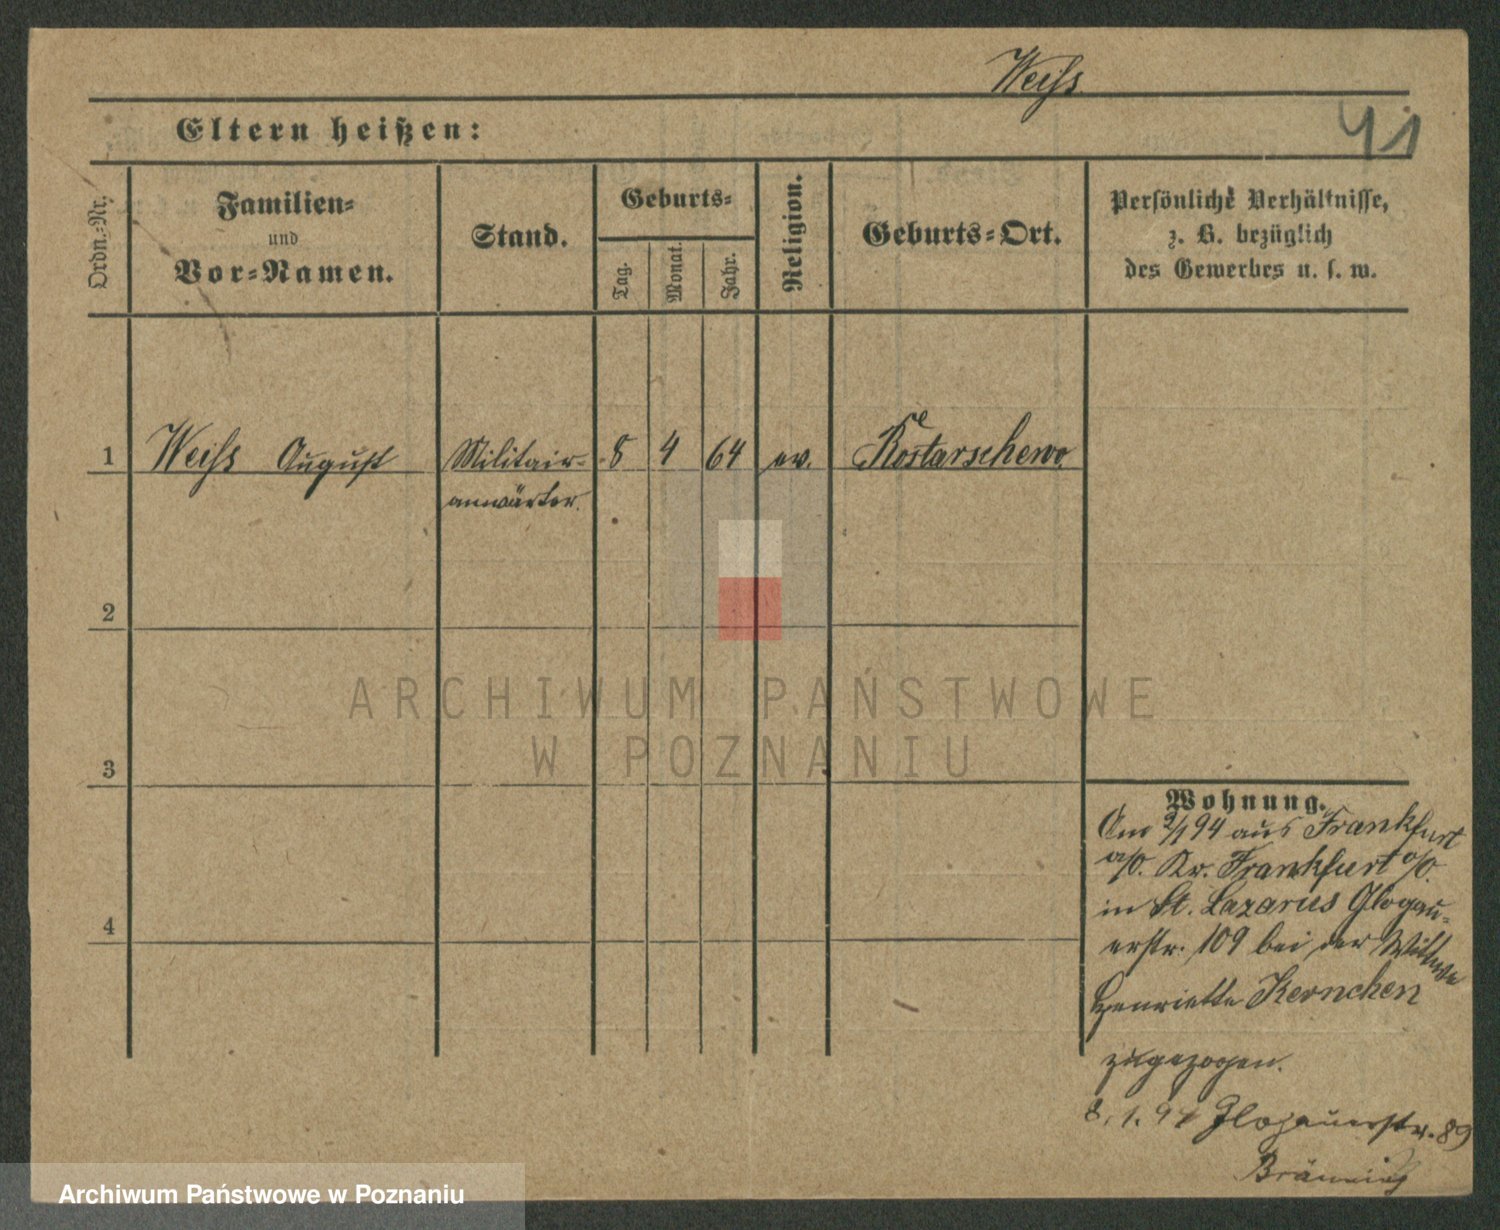 Weiſs
41
Eltern heißen:
Ordn.-Nr.
Familien-
und
Vor-Namen.
Stand.
Geburts-
Tag.
Monat.
Jahr.
Religion.
Geburts-Ort.
Persönliche Verhältnisse,
z. B. bezüglich
des Gewerbes u. s. w.
1 Weiſs August Militair- 8 4 64 ev. Kostarschewo
anwärter.
2
3
4
ARCHIWUM PAŃSTWOWE
W POZNANIU
Wohnung.
Am 2/1 94 aus Frankfurt
a/O. Kr. Frankfurt a/O.
in St. Lazarus Glogau-
erstr. 109 bei der Wittwe
Henriette Kernchen
zugezogen.
8. 1. 94 Glogauerstr. 89
Archiwum Państwowe w Poznaniu